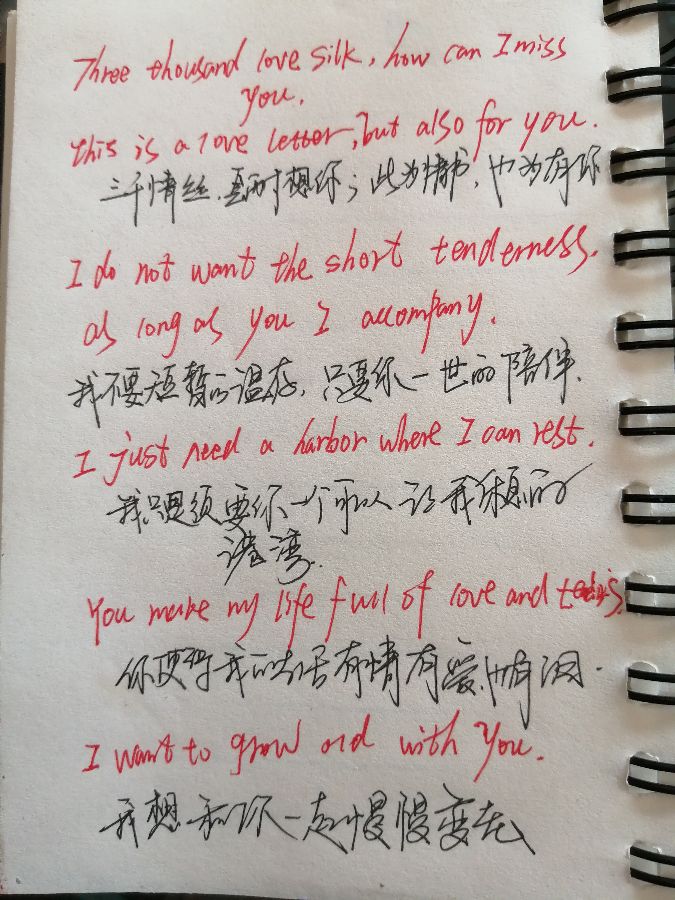 Three thousand love silk, how can I miss
You.
this is a love letter, but also for you.
三千情丝，时想你；此为情书，也为有你
I do not want the short tenderness.
as long as you I accompany.
我不要短暂的温存，只要你一世的陪伴.
I just need a harbor where I can rest.
我只须要你一个可以让我休息的
港湾.
You make my life full of love and
你使得我的生活有情有爱也有泪.
I want to grow old with You.
我想和你一起慢慢变老